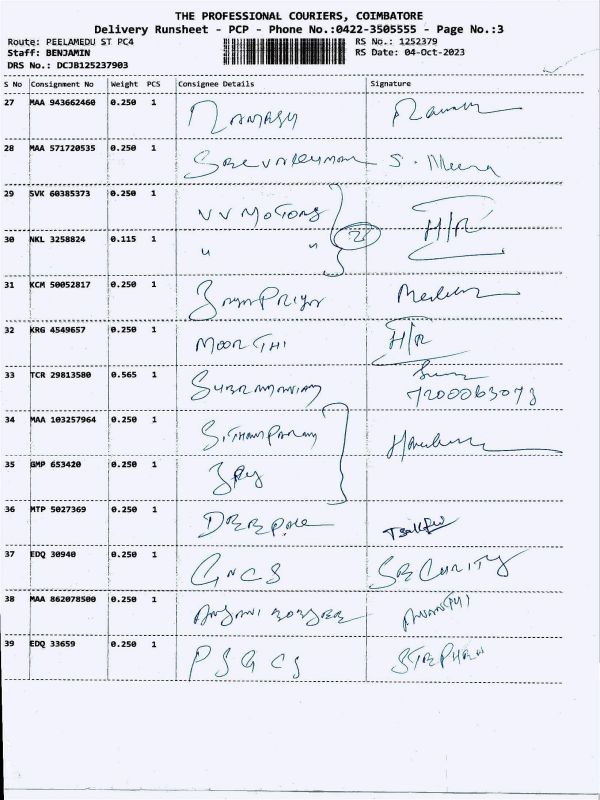 THE PROFESSIONAL COURIERS, COIMBATORE
Delivery Runsheet - PCP - Phone No.:0422-3505555 - Page No.:3
Route: PEELAMEDU ST PC4 RS No.: 1252379
Staff: BENJAMIN RS Date: 04-Oct-2023
DRS No.: DCJB125237903
S No Consignment No Weight PCS Consignee Details Signature
27 MAA 943662460 0.250 1 RAMASY
28 MAA 571720535 0.250 1 S. Meena
29 SVK 60385373 0.250 1 VV MOTORS H/R
30 NKL 3258824 0.115 1 " " 2
31 KCM 50052817 0.250 1
32 KRG 4549657 0.250 1 MOORTHI H/R
33 TCR 29813580 0.565 1 SUBRAMANIAM
7200063073
34 MAA 103257964 0.250 1
35 GMP 653420 0.250 1
36 MTP 5027369 0.250 1
37 EDQ 30940 0.250 1 GNCS SECURITY
38 MAA 862078500 0.250 1 ANANTHI
39 EDQ 33659 0.250 1 PSGCS STEPHEN